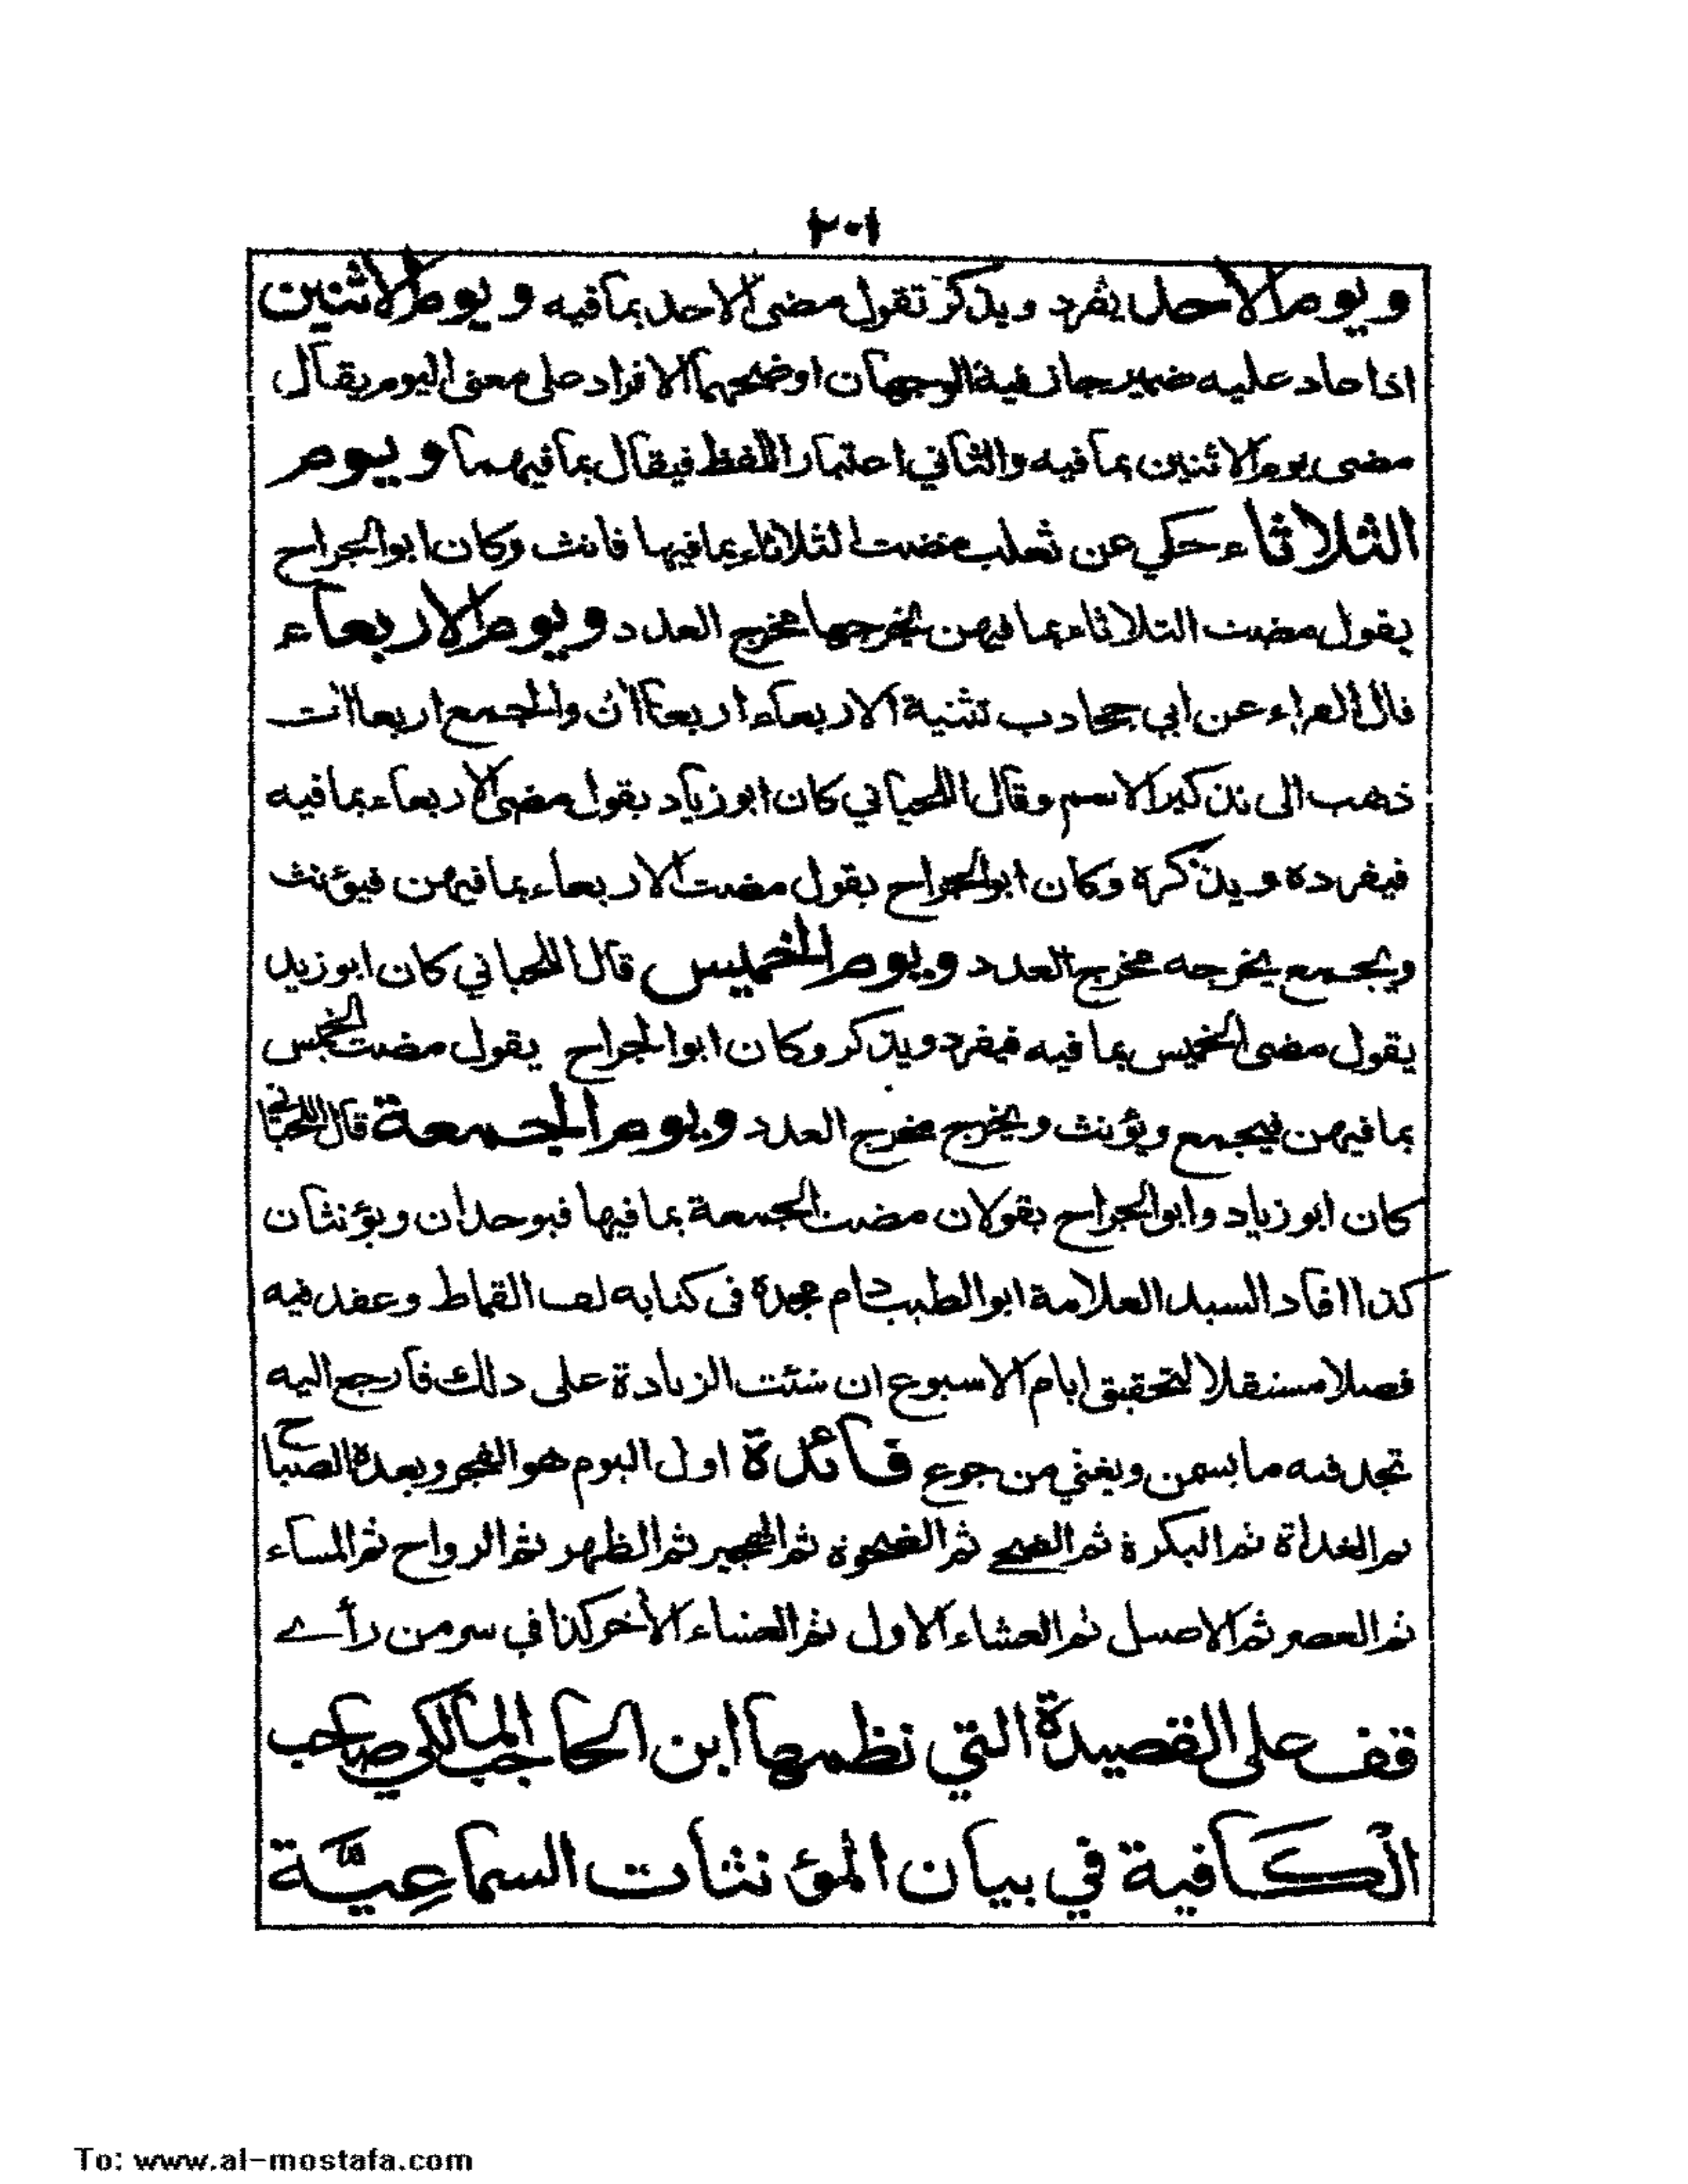 ٢٠١
ويوم الاحد يفرد ويذكر تقول مضى الاحد بما فيه ويوم الاثنين
اذا عاد عليه ضمير جاز فيه الوجهان اوضحهما الافراد على معنى اليوم يقال
مضى يوم الاثنين بما فيه والثاني اعتبار اللفظ فيقال بما فيهما ويوم
الثلاثاء حكي عن ثعلب مضت الثلاثاء بما فيها فانث وكان ابو الجراح
يقول مضت الثلاثاء بما فيهن يخرجها مخرج العدد ويوم الاربعاء
قال الفراء عن ابي جخادب تثنية الاربعاء اربعاأان والجمع اربعاأت
ذهب الى تذكير الاسم وقال اللحياني كان ابو زياد يقول مضى الاربعاء بما فيه
فيفرده ويذكره وكان ابو الجراح يقول مضت الاربعاء بما فيهن فيؤنث
ويجمع يخرجه مخرج العدد ويوم الخميس قال اللحياني كان ابو زيد
يقول مضى الخميس بما فيه فيفرد ويذكر وكان ابو الجراح يقول مضت الخميس
بما فيهن فيجمع ويؤنث ويخرج مخرج العدد ويوم الجمعة قال اللحياني
كان ابو زياد وابو الجراح يقولان مضت الجمعة بما فيها فيوحدان ويؤنثان
كذا افاد السيد العلامة ابو الطيب دام مجده فى كتابه لف القماط وعقد فيه
فصلا مستقلا لتحقيق ايام الاسبوع ان شئت الزيادة على ذلك فارجع اليه
تجد فيه ما يسمن ويغني من جوع فائدة اول اليوم هو الفجر وبعده الصباح
ثم الغداة ثم البكرة ثم الضحى ثم الضحوة ثم الهجير ثم الظهر ثم الرواح ثم المساء
ثم العصر ثم الاصيل ثم العشاء الاول ثم العشاء الأخر كذا في سر من رأے
قف على القصيدة التي نظمها ابن الحاجب المالكي صاحب
الكافية في بيان المؤنثات السماعيَّة
To: www.al-mostafa.com